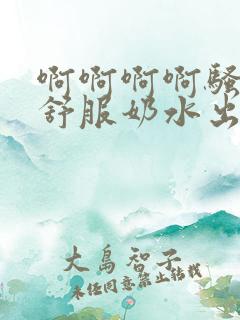 啊啊啊啊骚
舒服奶水出
大岛智子
未经同意禁止转载